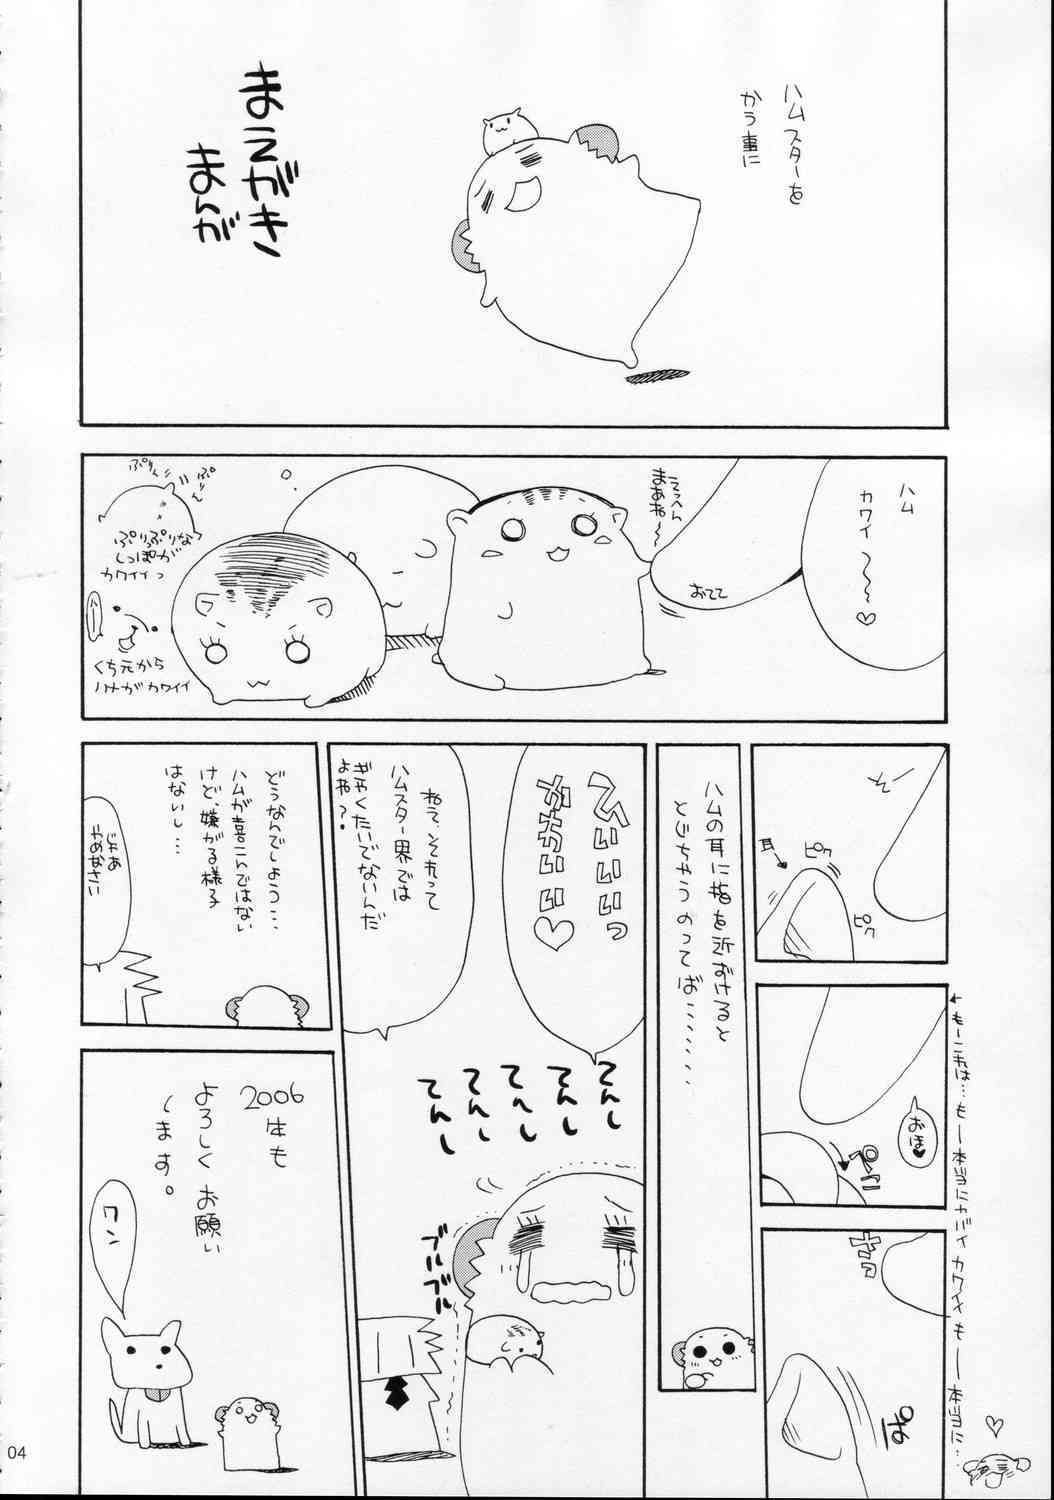 ハムスターを
かう事に
まえがき
まんが
ハム
カワイ～～～♡
てっぺん
まぁね～
おてて
ぷりん
ぷりん
ぷりっぷりな
しっぽが
カワイイっ
くち元から
ハナがカワイイ
耳
ピク
ピク
おほ♥
ペこ
ハムの耳に指を近ずけると
とじちゃうのってば………
かわいいいっ
ねえ、それって
ハムスター界では
ぎゃくたいでないんだ
よね？
てんし
てんし
てんし
てんし
てんし
ブルブル
ブルブル
どうなんでしょう…
ハムが喜こんではない
けど、嫌がる様子
はないし…
じゃあ
やめなさい
2006年も
よろしくお願い
します。
ワン
もーこれは…もー本当にヤバイカワイイもー本当に…
04